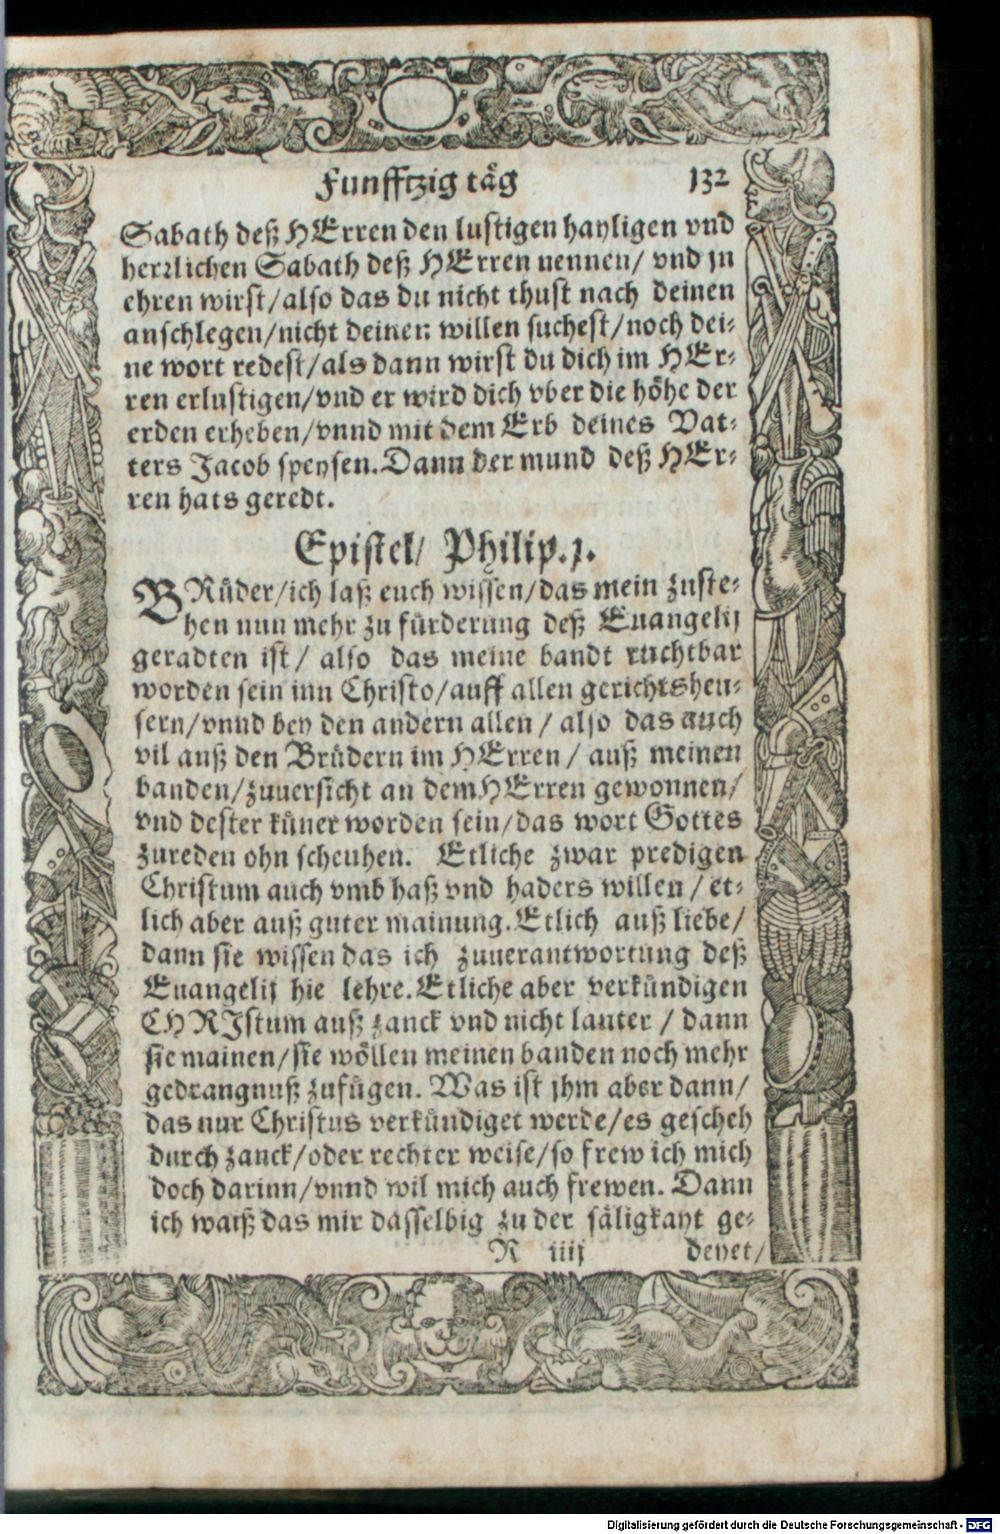 Funfftzig täg 132
Sabath deß HErren den lustigen hayligen vnd
herrlichen Sabath deß HErren nennen/ vnd jn
ehren wirst/also das du nicht thust nach deinen
anschlegen/nicht deinen willen suchest/noch dei-
ne wort redest/als dann wirst du dich im HEr-
ren erlustigen/vnd er wird dich vber die höhe der
erden erheben/vnnd mit dem Erb deines Vat-
ters Jacob speysen. Dann der mund deß HEr-
ren hats geredt.
Epistel/ Philip. j.
BRüder/ich laß euch wissen/das mein zuste-
hen nun mehr zu fürderung deß Euangelij
geradten ist/ also das meine bandt ruchtbar
worden sein inn Christo/auff allen gerichtsheu-
sern/vnnd bey den andern allen / also das auch
vil auß den Brüdern im HErren / auß meinen
banden/zuuersicht an dem HErren gewonnen/
vnd dester küner worden sein/das wort Gottes
zureden ohn scheuhen. Etliche zwar predigen
Christum auch vmb haß vnd haders willen / et-
lich aber auß guter mainung. Etlich auß liebe/
dann sie wissen das ich zuuerantwortung deß
Euangelij hie lehre. Etliche aber verkündigen
CHRIstum auß zanck vnd nicht lauter / dann
sie mainen/sie wöllen meinen banden noch mehr
gedrangnuß zufügen. Was ist jhm aber dann/
das nur Christus verkündiget werde/es gescheh
durch zanck/oder rechter weise/so frew ich mich
doch darinn/vnnd wil mich auch frewen. Dann
ich waiß das mir dasselbig zu der säligkayt ge-
R iiij deyet/
Digitalisierung gefördert durch die Deutsche Forschungsgemeinschaft - DFG